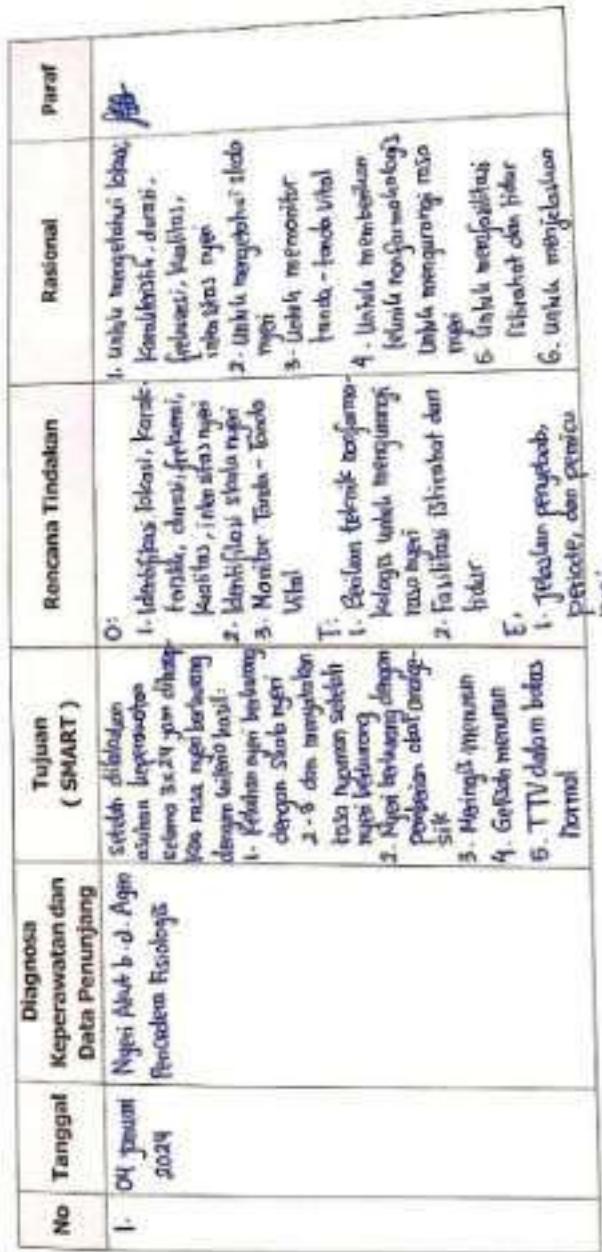 No
Tanggal
Diagnosa
Keperawatan dan
Data Penunjang
Tujuan
( SMART )
Rencana Tindakan
Rasional
Paraf
1.
04 Januari
2024
Nyeri Akut b.d. Agen
Pencedera Fisiologis
Setelah dilakukan
asuhan keperawatan
selama 3x24 jam diharap-
kan rasa nyeri berkurang
dengan kriteria hasil:
1. Keluhan nyeri berkurang
dengan skala nyeri
2-3 dan menyatakan
rasa nyaman setelah
nyeri berkurang
2. Nyeri berkurang dengan
pemberian obat analge-
sik
3. Meringis menurun
4. Gelisah menurun
5. TTV dalam batas
Normal
O:
1. Identifikasi lokasi, karak-
teristik, durasi, frekuensi,
kualitas, intensitas nyeri
2. Identifikasi skala nyeri
3. Monitor Tanda - Tanda
Vital
T:
1. Berikan teknik nonfarma-
kologis untuk mengurangi
rasa nyeri
2. Fasilitasi istirahat dan
tidur
E:
1. Jelaskan penyebab,
periode, dan pemicu
1. Untuk mengetahui lokasi,
karakteristik, durasi,
frekuensi, kualitas,
intensitas nyeri
2. Untuk mengetahui skala
nyeri
3. Untuk memonitor
tanda - tanda vital
4. Untuk memberikan
teknik nonfarmakologis
untuk mengurangi rasa
nyeri
5. Untuk memfasilitasi
istirahat dan tidur
6. Untuk menjelaskan